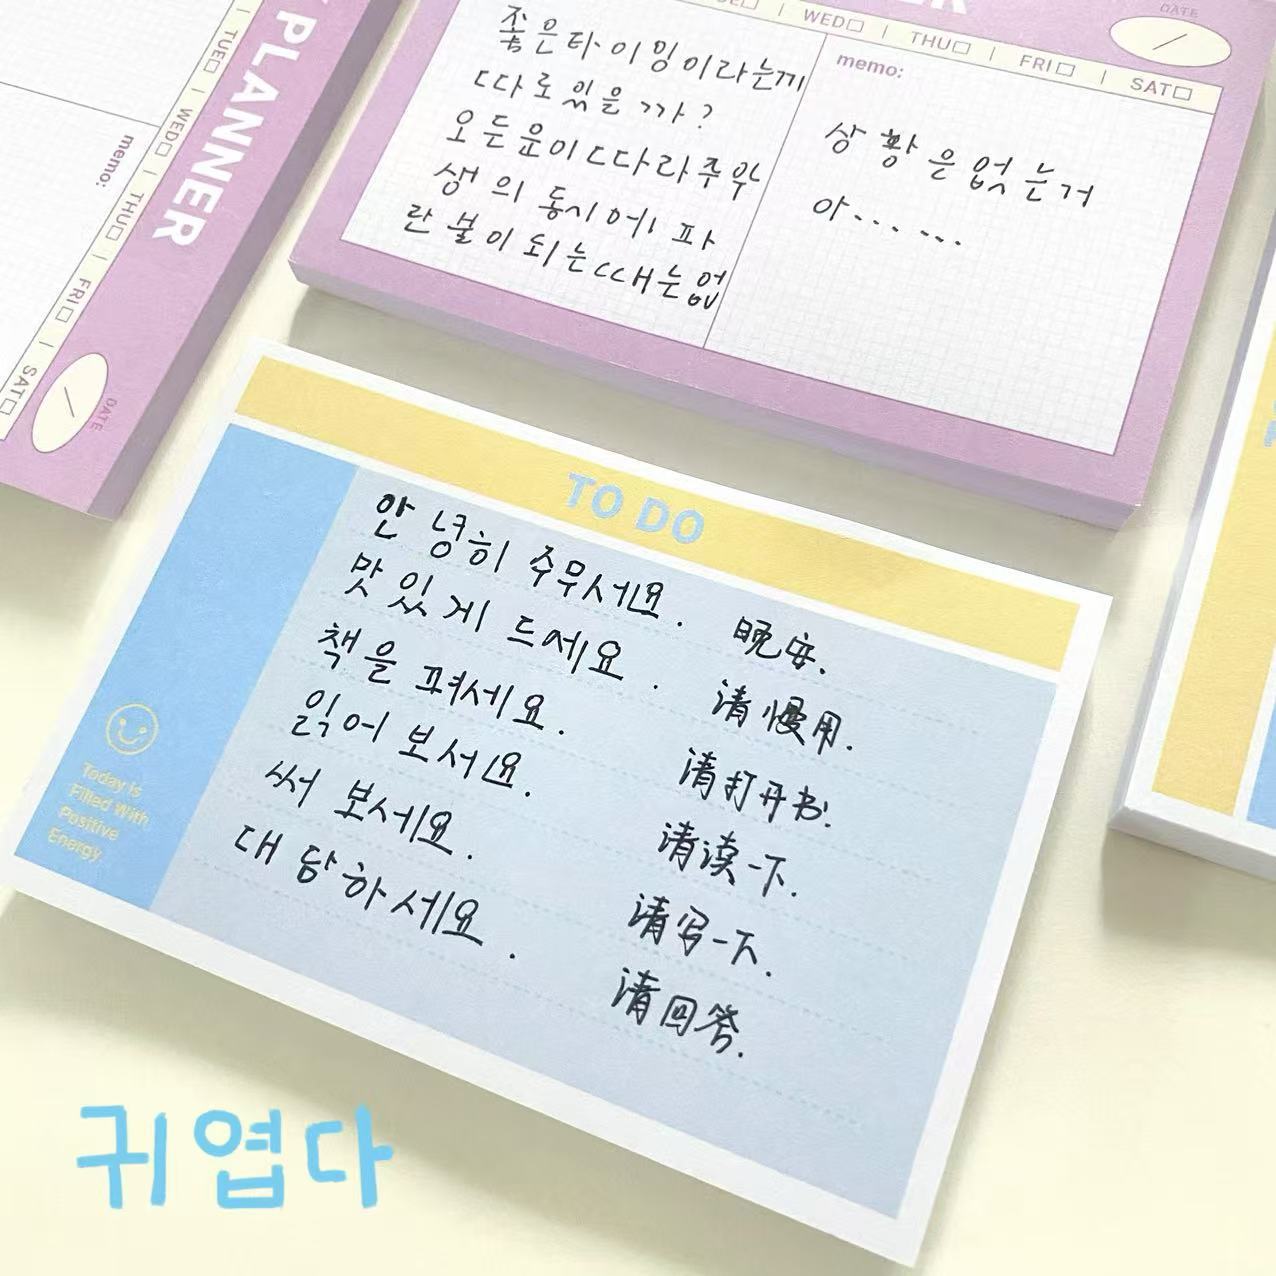 PLANNER
TUE□ | WED□ | THU□ | FRI□ | SAT□
memo:
DATE
WED□ | THU□ | FRI□ | SAT□
DATE
좋은타이밍이라는게
따로있을까?
모든운이따라주와
생의동시에파
란불이되는때는없
memo:
상황은없는거
아......
TO DO
안녕히 주무세요. 晚安.
맛있게 드세요. 请慢用.
책을 펴세요. 请打开书.
읽어 보세요. 请读一下.
써 보세요. 请写一下.
대답하세요. 请回答.
Today is
Filled With
Positive
Energy
귀엽다